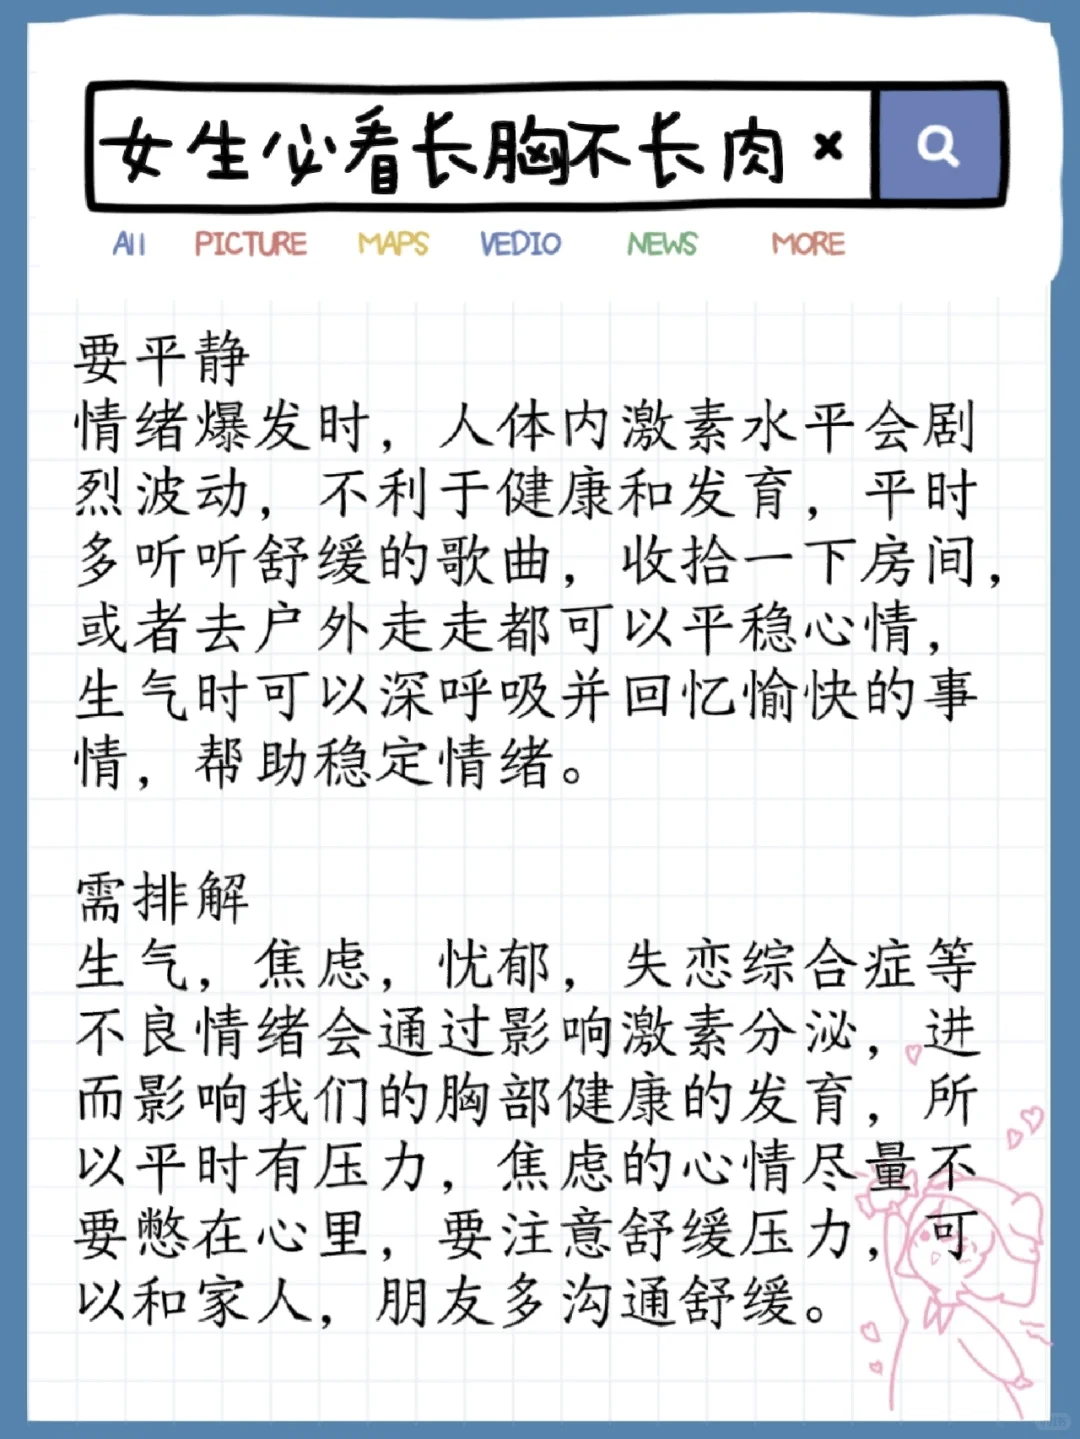 女生必看长胸不长肉 ×
All PICTURE MAPS VEDIO NEWS MORE
要平静
情绪爆发时，人体内激素水平会剧
烈波动，不利于健康和发育，平时
多听听舒缓的歌曲，收拾一下房间，
或者去户外走走都可以平稳心情，
生气时可以深呼吸并回忆愉快的事
情，帮助稳定情绪。
需排解
生气，焦虑，忧郁，失恋综合症等
不良情绪会通过影响激素分泌，进
而影响我们的胸部健康的发育，所
以平时有压力，焦虑的心情尽量不
要憋在心里，要注意舒缓压力，可
以和家人，朋友多沟通舒缓。